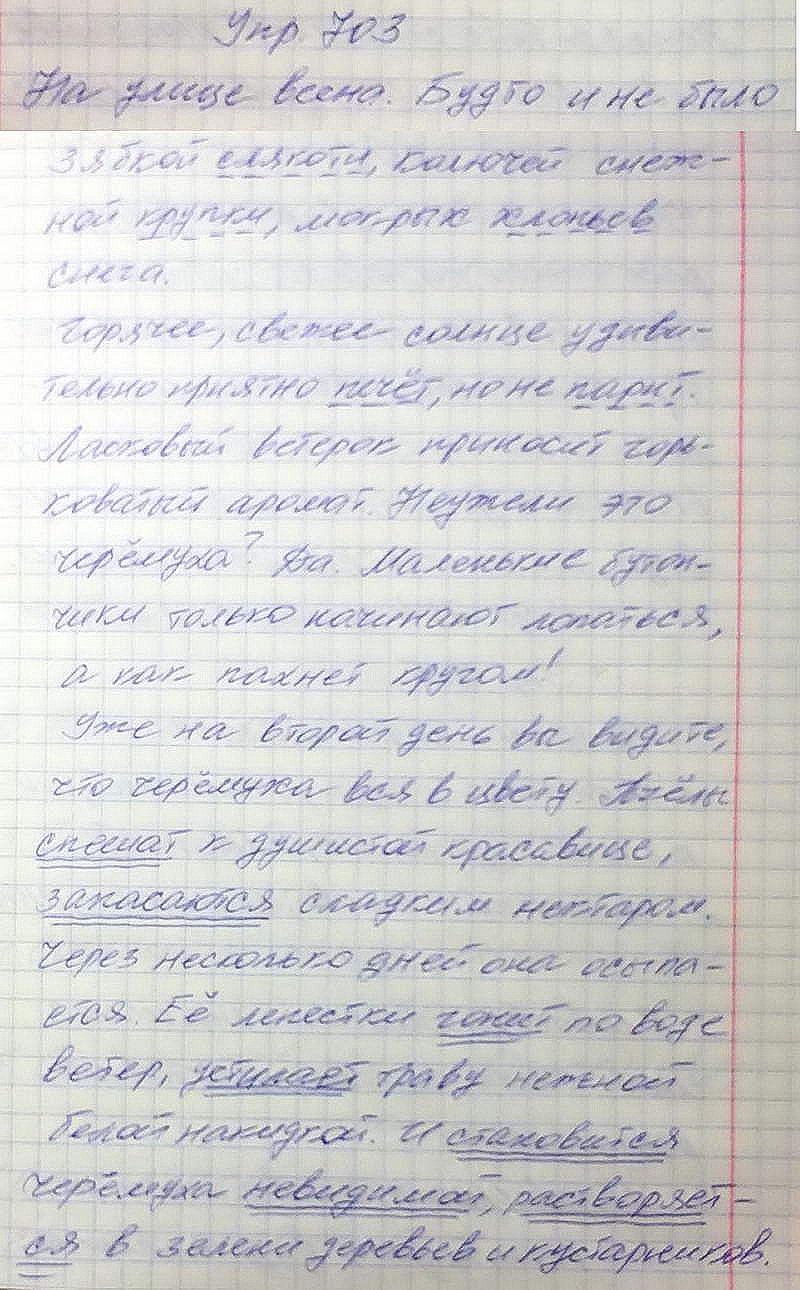 Упр. 703
На улице весна. Будто и не было
зябкой слякоти, колючей снеж-
ной крупки, мокрых хлопьев
снега.
Горячее, свежее солнце удиви-
тельно приятно печёт, но не парит.
Ласковый ветерок приносит горь-
коватый аромат. Неужели это
черёмуха? Да. Маленькие бутон-
чики только начинают лопаться,
а как пахнет кругом!
Уже на второй день вы видите,
что черёмуха вся в цвету. Пчёлы
спешат к душистой красавице,
запасаются сладким нектаром.
Через несколько дней она осыпа-
ется. Её лепестки гонит по воде
ветер, устилает траву нежной
белой накидкой. И становится
черёмуха невидимой, растворяет-
ся в зелени деревьев и кустарников.